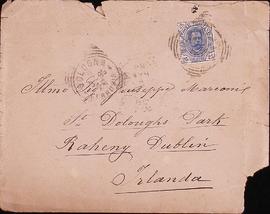 BOLOGNA
Illmo Giuseppe Marconi
St Doloughs Park
Raheny Dublin
Irlanda